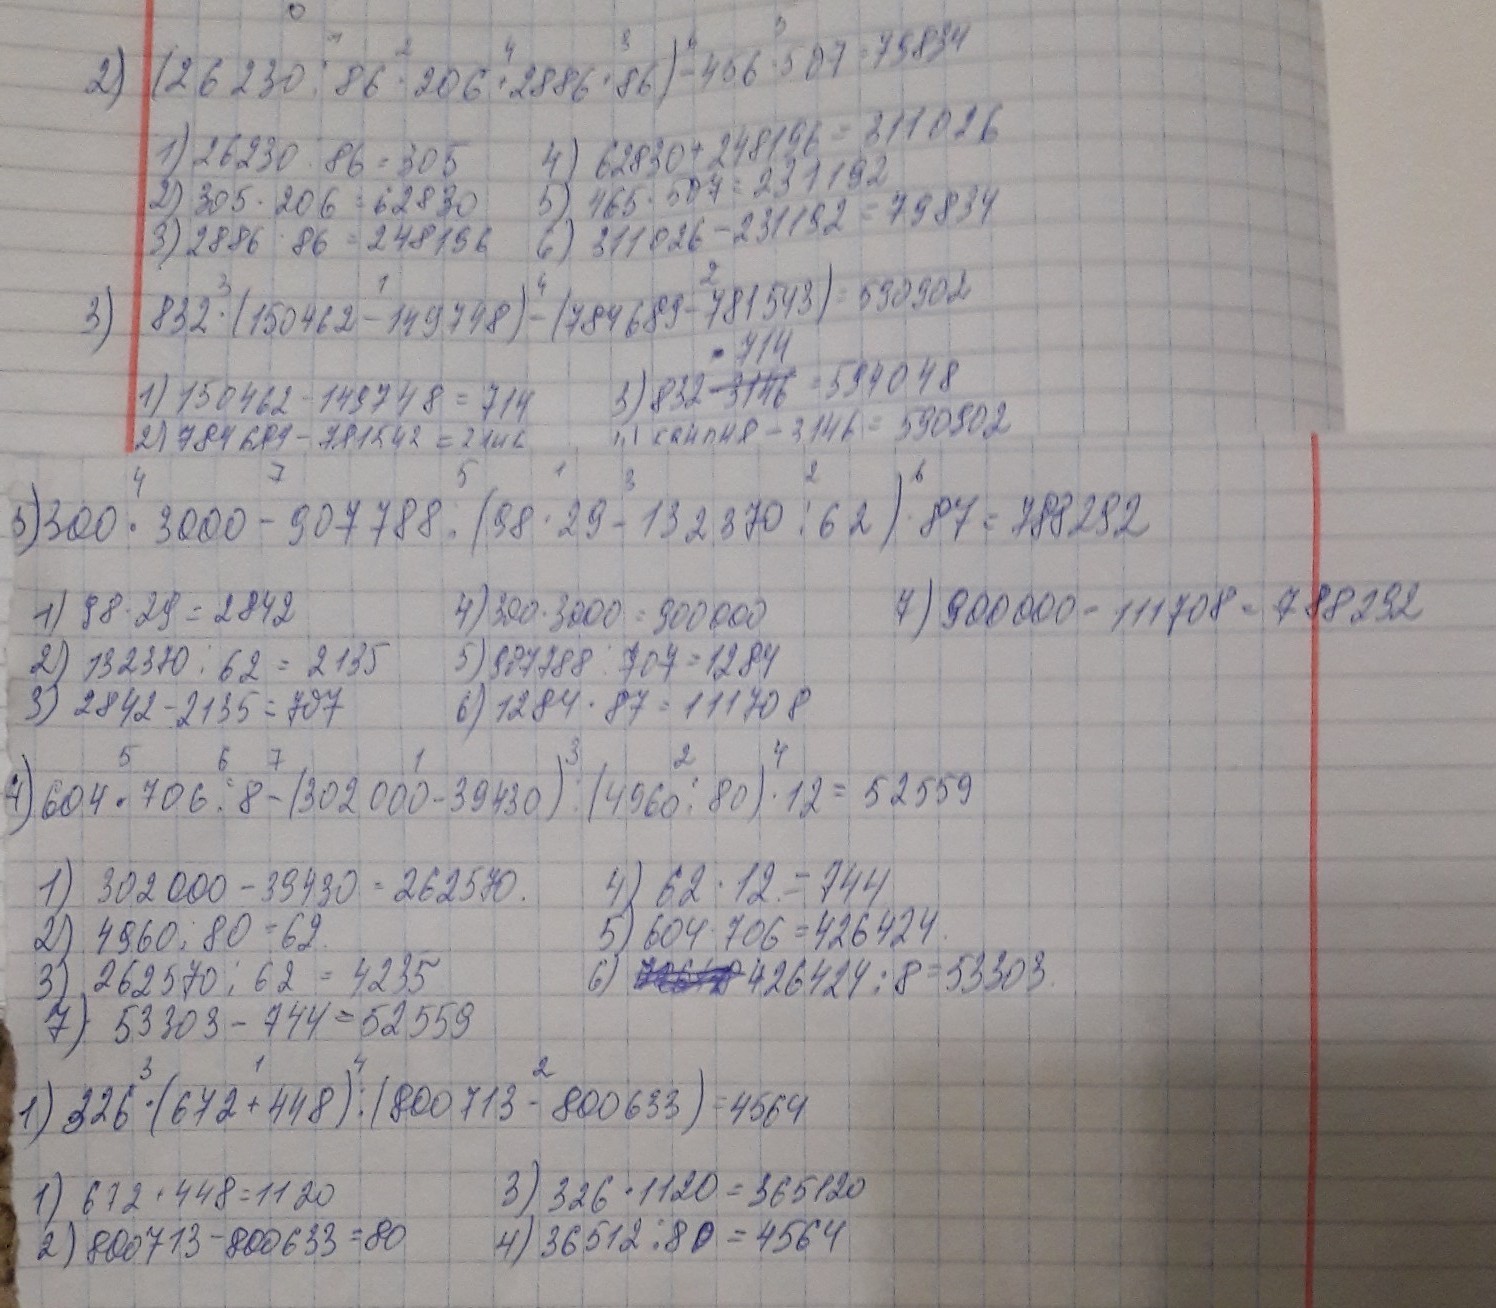 2) (26230 : 86 · 206 + 2886 · 86) - 456 · 507 = 79834
1) 26230 : 86 = 305 4) 62830 + 248196 = 311026
2) 305 · 206 = 62830 5) 465 · 507 = 231192
3) 2886 · 86 = 248196 6) 311026 - 231192 = 79834
3) 832 · (150462 - 149748) - (784689 - 781543) = 590902
· 714
1) 150462 - 149748 = 714 3) 832 - 3146 = 594048
2) 784689 - 781543 = 3146 - 3146 = 590902
5) 300 · 3000 - 907788 : (98 · 29 - 132370 : 62) · 87 = 788292
1) 98 · 29 = 2842 4) 300 · 3000 = 900000 7) 900000 - 111708 = 788292
2) 132370 : 62 = 2135 5) 907788 : 707 = 1284
3) 2842 - 2135 = 707 6) 1284 · 87 = 111708
4) 604 · 706 : 8 - (302000 - 39430) : (4960 : 80) · 12 = 52559
1) 302000 - 39430 = 262570. 4) 62 · 12 = 744
2) 4960 : 80 = 62. 5) 604 · 706 = 426424.
3) 262570 : 62 = 4235 6) 426424 : 8 = 53303.
7) 53303 - 744 = 52559
1) 326 · (672 + 448) : (800713 - 800633) = 4564
1) 672 + 448 = 1120 3) 326 · 1120 = 365120
2) 800713 - 800633 = 80 4) 36512 : 80 = 4564